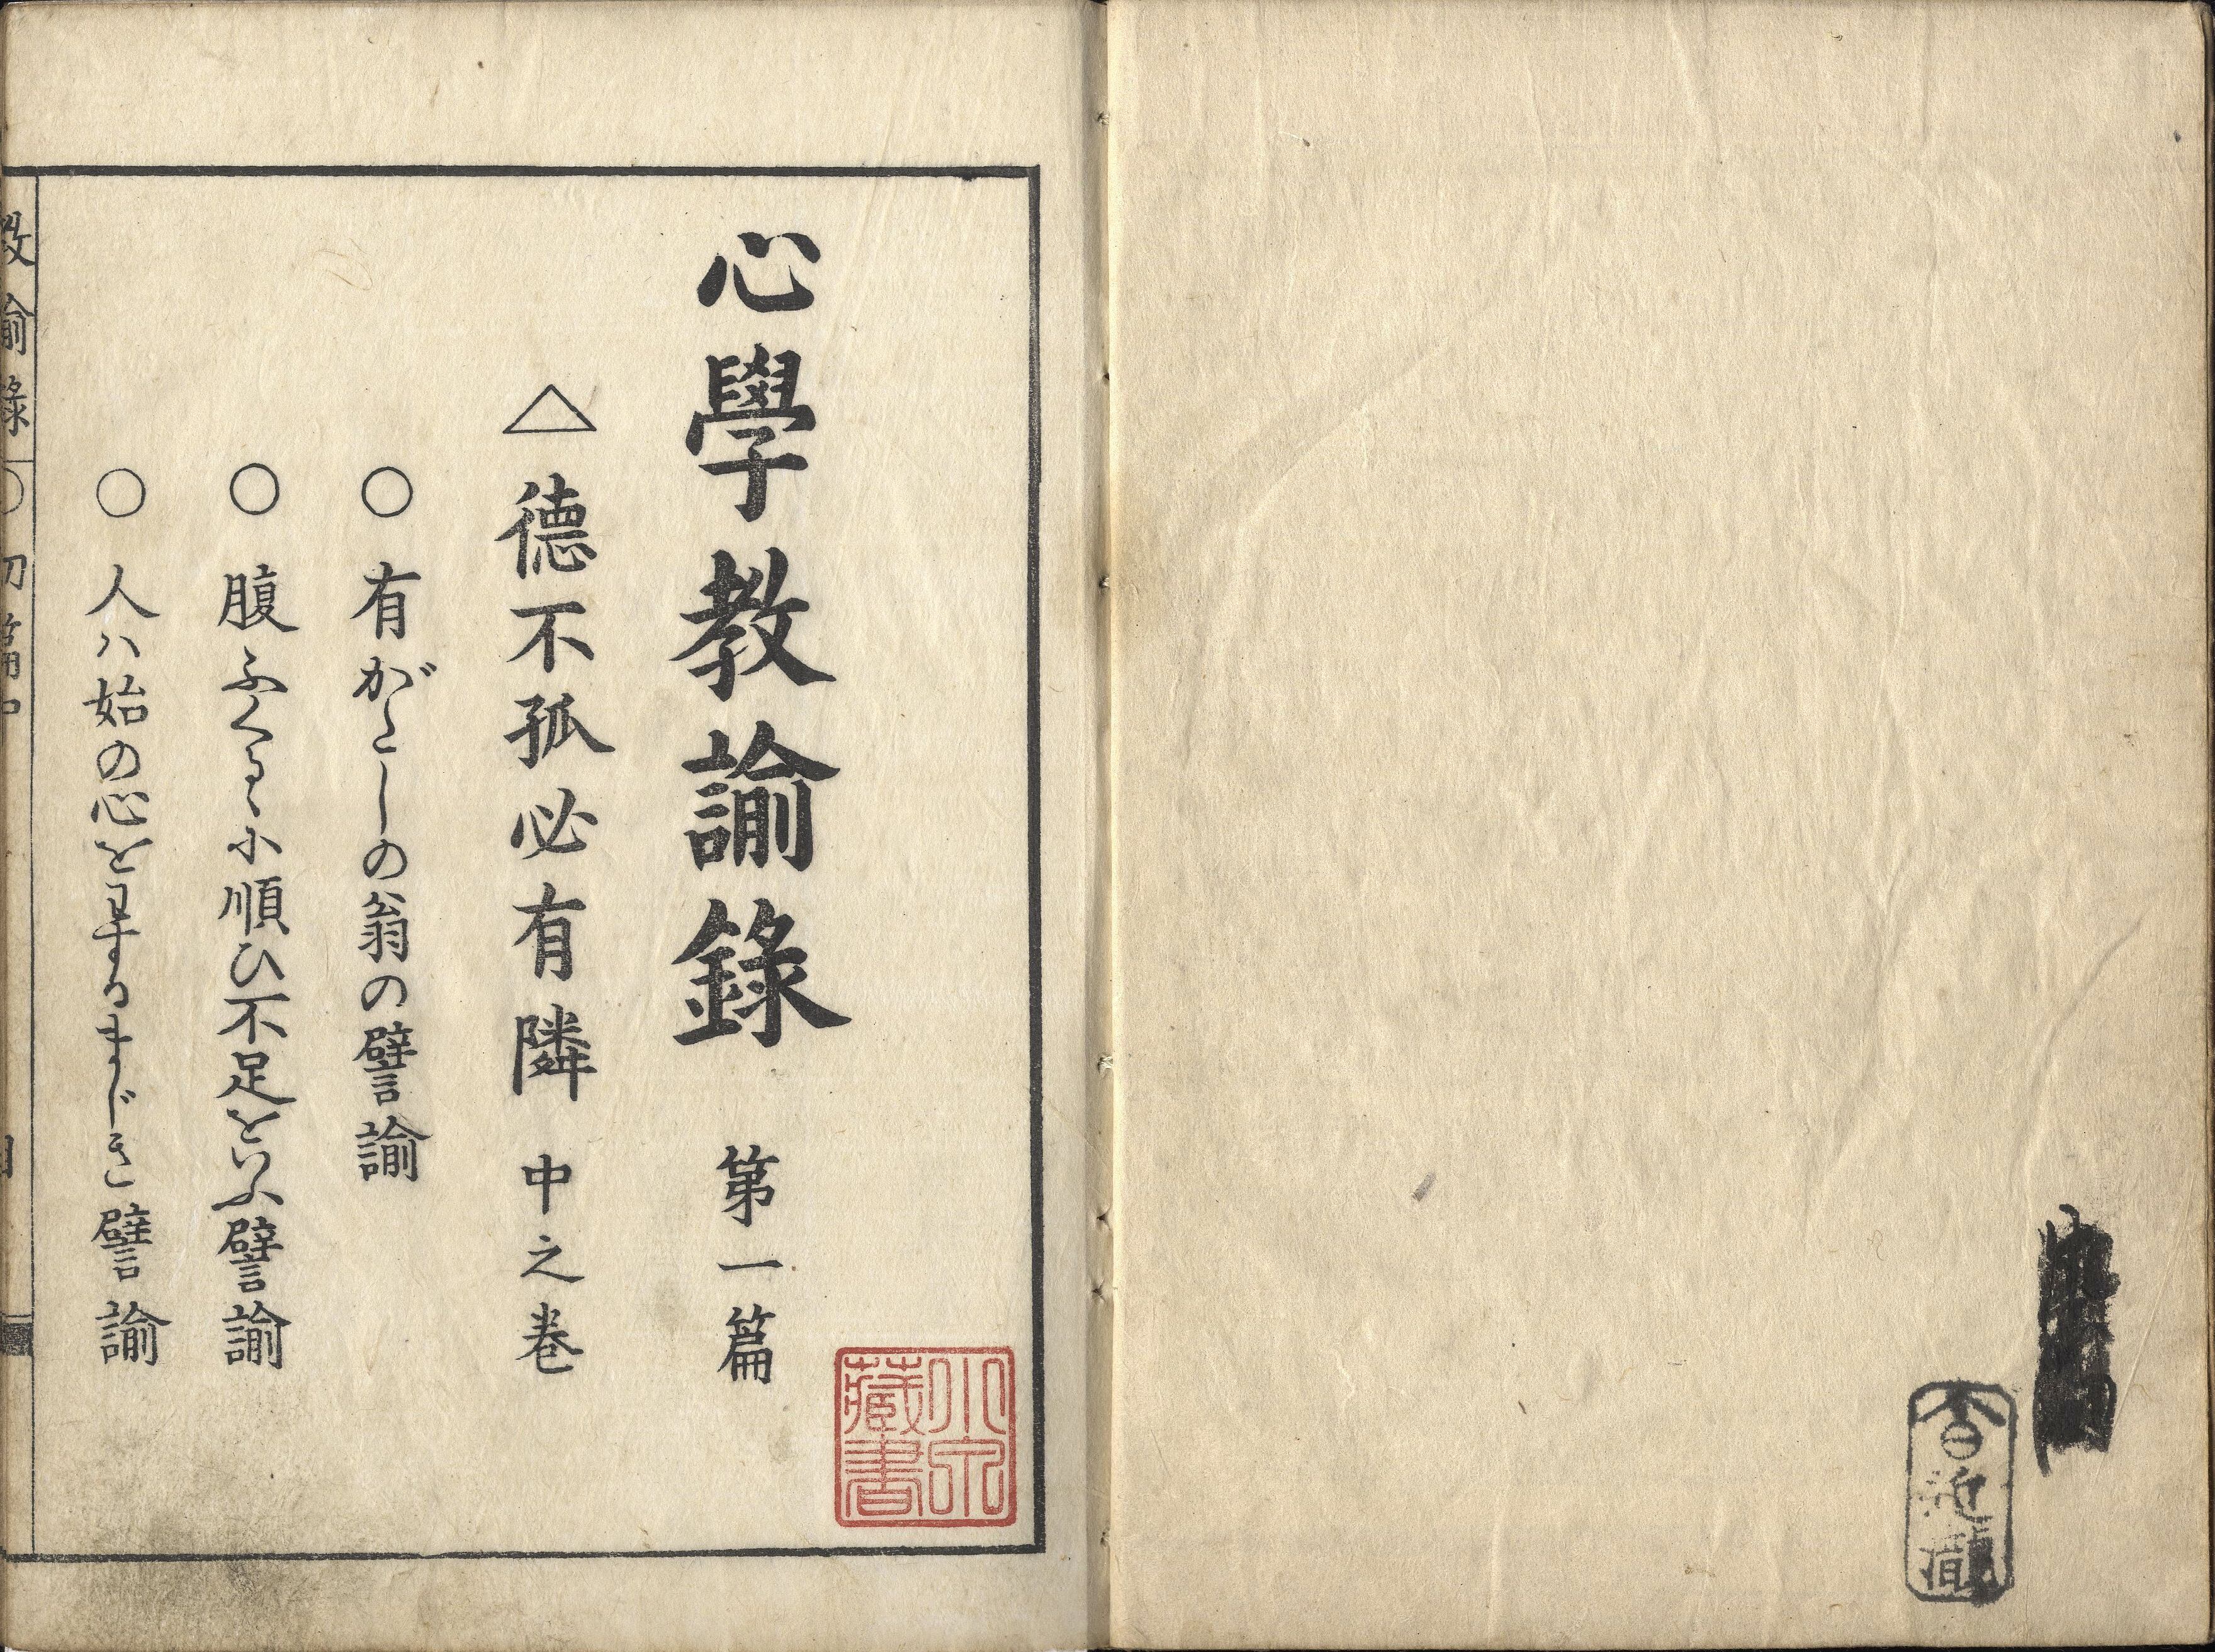 心學教諭錄 第一篇
△德不孤必有隣 中之卷
○有がたしの翁の譬諭
○腹ふくるゝに順ひ不足をいふ譬諭
○人ハ始の心をわするまじき譬諭
教諭錄 ○初篇中
小泉
藏書